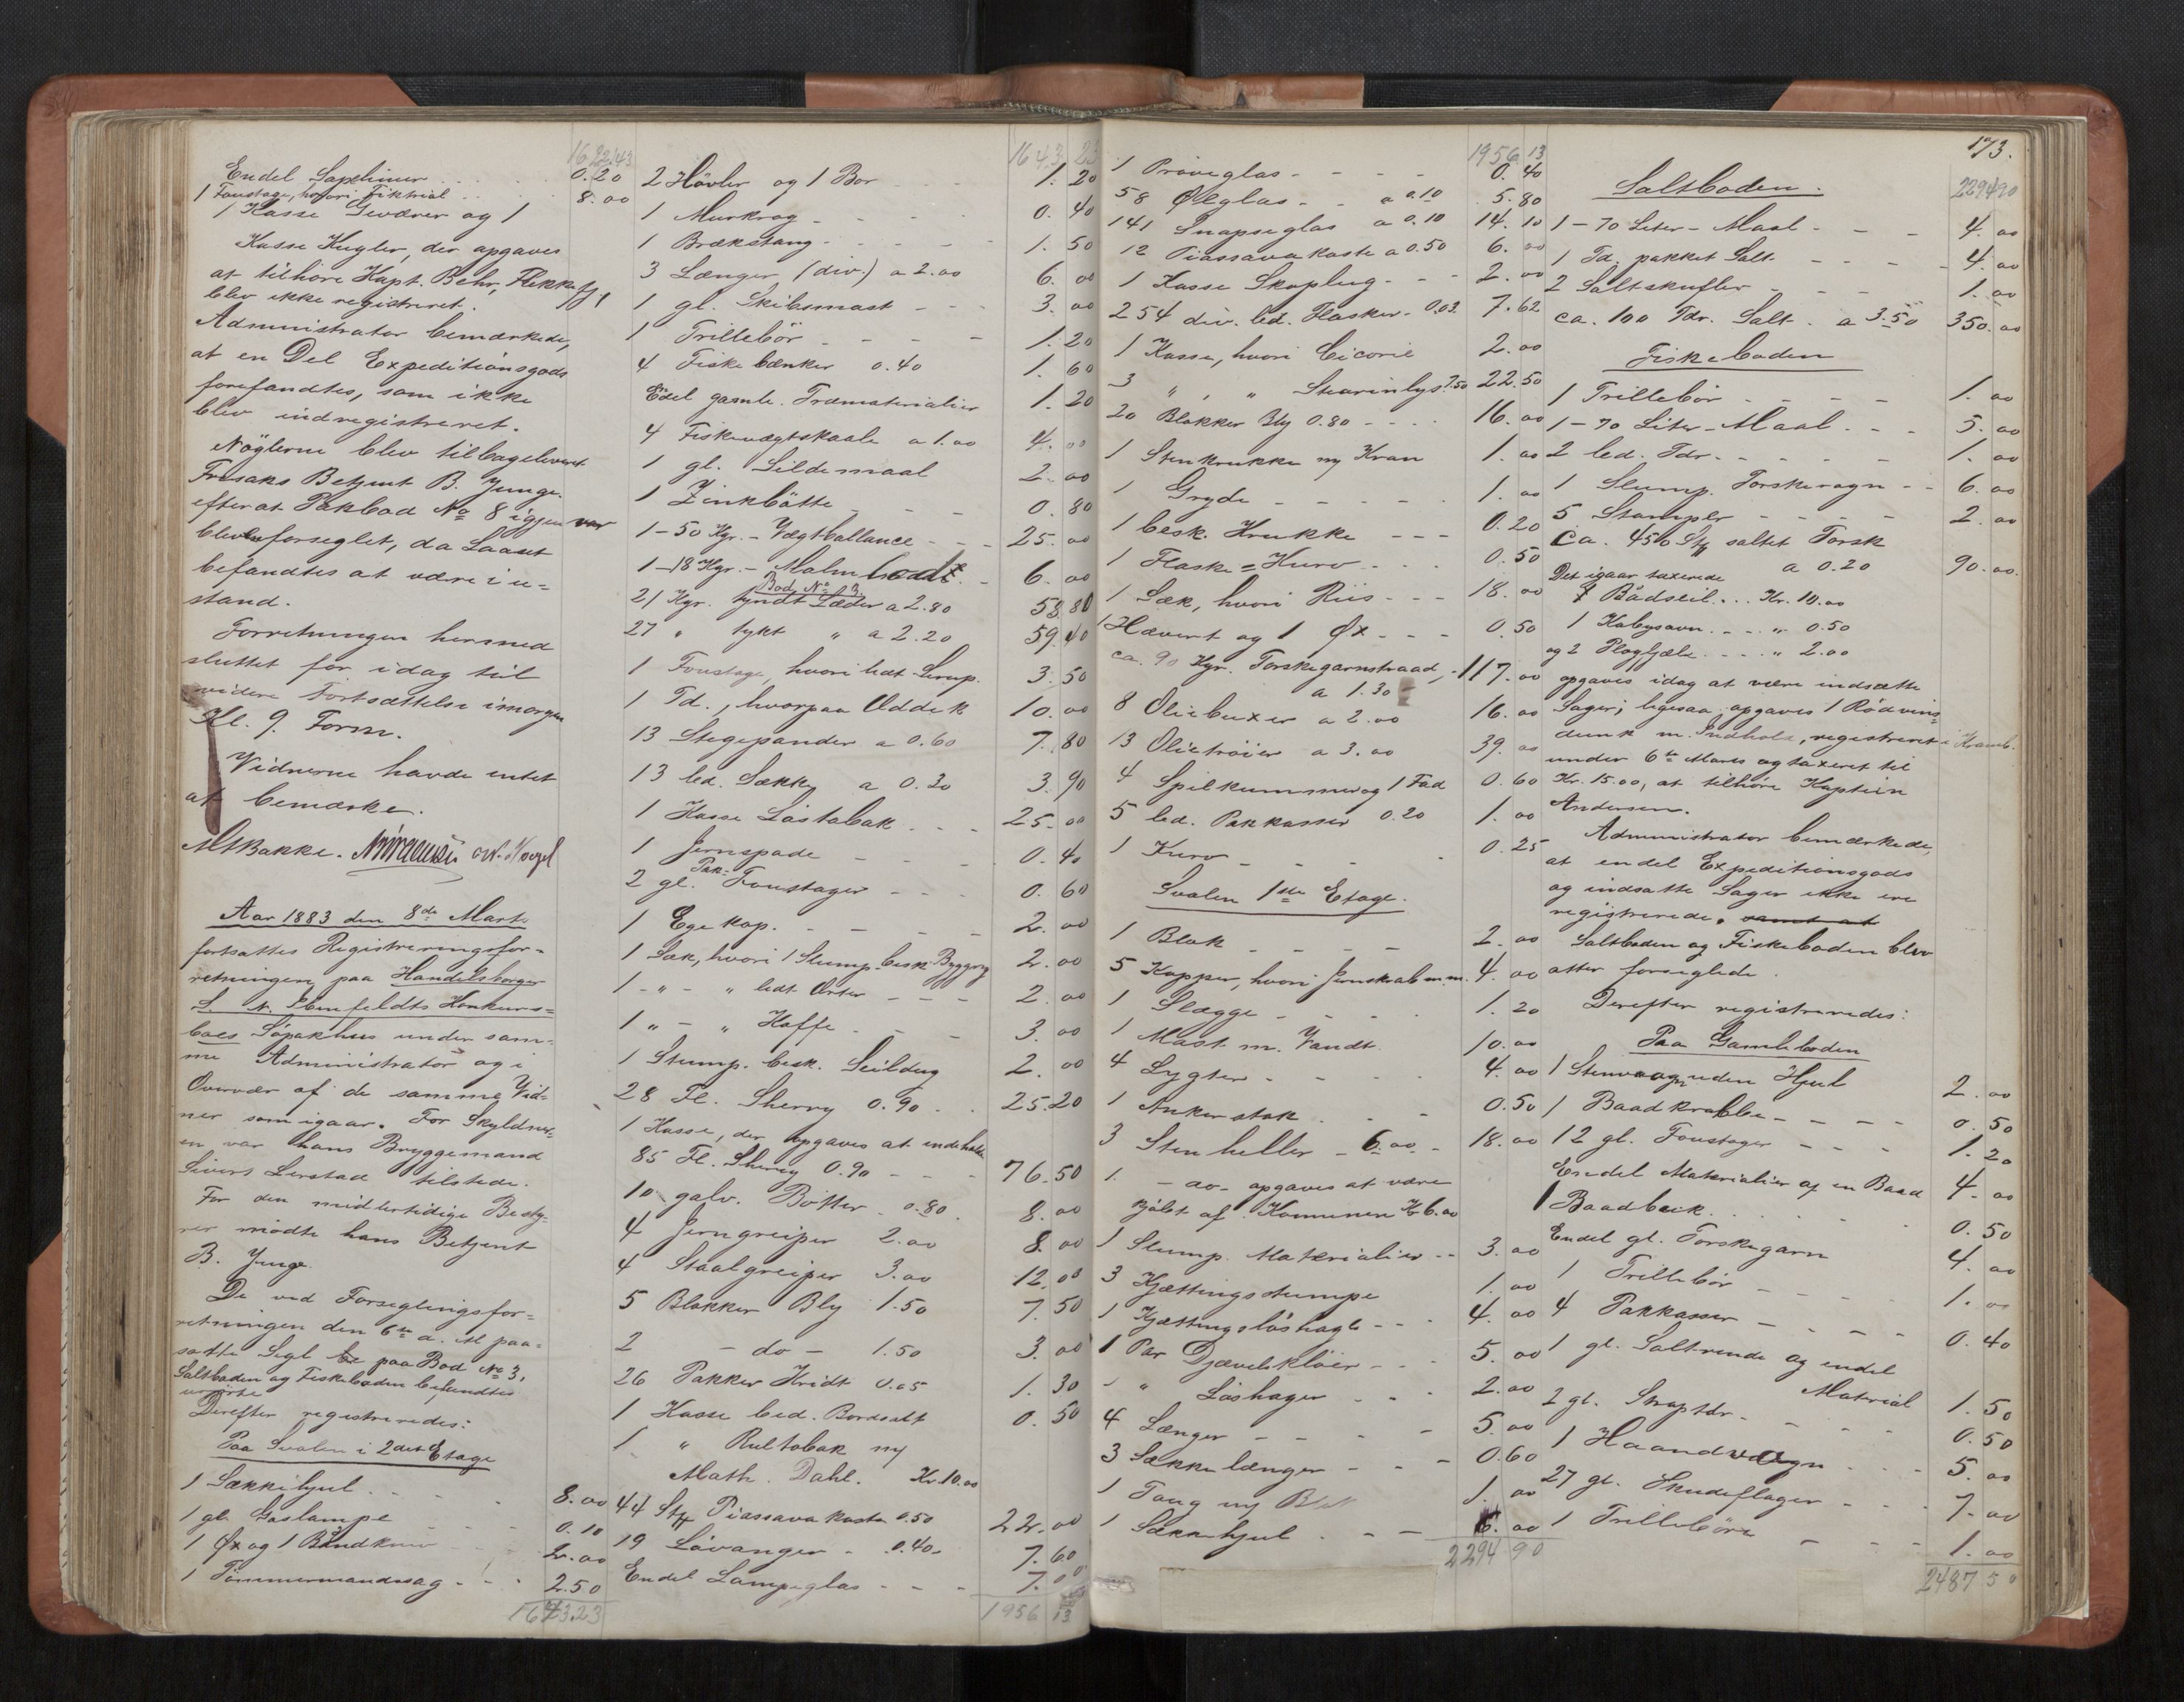 1622.43
Endel Sæpelimer . . . 0.20
1 Foustage, hvori Fiktrial . . 8.00
1 Kasse Geværer og 1
Kasse Kugler, der opgaves
at tilhöre Kapt. Behr, Flekkefj,
blev ikke registreret.
Administrator bemærkede,
at en Del Expeditionsgods
forefandtes, som ikke
blev indregistreret.
Nöglerne blev tilbageleveret
Frisaks Betjent B. Junge.
efterat Pakbod No 8 igjen var
bleven forseglet, da Laaset
befandtes at være i u-
stand.
Forretningen hermed
sluttet for idag til
videre Fortsættelse imorgen
Kl. 9. Form.
Vidnerne havde intet
at bemærke.
MBakke. O.N. Nogel
Aar 1883 den 8de Marts
fortsattes Registreringsfor-
retningen paa Handelsborger
L. N. Konkurs-
boes Söpakhus under sam-
me Administrator og i
Overvær af de samme Vid-
ner som igaar. For Skyldner-
en var hans Bryggemand
Sivert Lerstad tilstede.
For den midlertidige Besty-
rer mödte hans Betjent
B. Junge.
De ved Forseglingsfor-
retningen den 6te d. M. paa-
satte Segl paa Bod No 3,
Saltboden og Fiskeboden befandtes
urörte
Derefter registreredes:
Paa Svalen i 2det Etage
1 Sækkehjul . . . 8.00
1 gl. Gaslampe . . 0.10
1 Øx og 1 Båndkniv . . 2.00
1 Tömmermandssag . . 2.50
1643.23
1643 23
2 Hövler og 1 Bor . . . 1.20
1 Murkrog - - - 0.40
1 Brækstang - - - 1.50
3 Længer (div.) a 2.00 6.00
1 gl. Skibsmast - - 3.00
1 Trillebör - - - 1.20
4 Fiskebænker 0.40 1.60
Edel gamle Træmaterialier 1.20
4 Fiskevægtskaale a 1.00 4.00
1 gl. Sildemaal 2.00
1 Zinkbötte - - 0.80
1-50 Kgr. - Vægtballance - - 25.00
1-18 Kgr. - Malm Lodd - 6.00
Bod No 3
21 Kgr. tyndt Læder a 2.80 58.80
27 " tykt " a 2.20 59.40
1 Foustage, hvori lidt Sirup. 3.50
1 Td., hvorpaa Eddik 10.00
13 Stegepander a 0.60 7.80
13 led. Sække a 0.30 3.90
1 Kasse Löstobak . . - 25.00
1 Jernspade - - - 0.40
2 gl. Pak-Foustager - - 0.60
1 Egekop. - - - 2.00
1 Sæk, hvori 1 Slump besk. Byggryg 2.00
1 - " - " lidt Erter - - 2.00
1 " - " Kaffe - - 3.00
1 Stump. besk. Seildug 2.00
28 Fl. Sherry 0.90 . . 25.20
1 Kasse, der opgaves at indeholde
85 Fl. Sherry 0.90 - - 76.50
10 galv. Bötter . 0.80 . 8.00
4 Jerngreiper 2.00 8.00
4 Staalgreiper 3.00 12.00
5 Blokker Bly 1.50 7.50
2 - do - 1.50 3.00
26 Pakker Kridt 0.05 1.30
1 Kasse led. Bordsalt 0.50
1 " Rultobak m/
Math. Dahl. Kr. 10.00
44 Stk Piassava koste 0.50 22.00
19 Lövanger - 0.40 - 7.60
Endel Lampeglas - - - 7.00
1956 13
1956 13
1 Pröveglas - - - 0.40
58 Ølglas - - a 0.10 5.80
141 Snapseglas a 0.10 14.10
12 Piassavakoste a 0.50 6.00
1 Kasse Skoplug - - 2.00
254 div. led. Flasker - 0.03 7.62
1 Kasse, hvori Cicorie 2.00
3 " , " Stearinlys 7.50 22.50
20 Blokker Bly 0.80 - - - 16.00
1 Stenkrukke m/ Kran 1.00
1 Gryde - - - 1.00
1 besk. Krukke - - - 0.20
1 Flaske = Kurv - - - 0.50
1 Sæk, hvori Riis - - - 18.00
1 Hævert og 1 Øx - - - 0.50
ca. 90 Kgr. Torskegarnstraad, - 117.00
a 1.30
8 Oliebuxer a 2.00 16.00
13 Olietröier a 3.00 39.00
4 Spilkummer og 1 Fad 0.60
5 led. Pakkasser 0.20 1.00
1 Kurv - - - 0.25
Svalen 1ste Etage.
1 Blok - - - 2.00
5 Kopper, hvori Jernskrab m.m. 4.00
1 Slægge - - - 1.20
1 Mast m. Vandt 10.00
4 Lygter - - - 4.00
1 Ankerstok . - - 0.50
3 Stenheller - 6.00 - 18.00
1. - do - opgaves at være
kjöbt af Komunen Kr 6.00
1 Slump. Materialier - - 3.00
3 Kjættingsstumpe 1.00
1 Kjættingslöshage - - - 4.00
1 Par Djævleklöer - - 5.00
- " Löshager . - - 2.00
4 Længer - - - 5.00
3 Sækkelænger - - - 0.60
1 Toug m/ Blok 1.00
1 Sækkehjul . - - 6.00
2294 90
173.
2294 90
Saltboden.
1-70 Liter - Maal - - - 4.00
1 Td. pakket Salt - - - 4.00
2 Saltskufler - - - 1.00
ca. 100 Tdr. Salt . a 3.50 350.00
Fiskeboden
1 Trillebör - - - 1.00
1-70 Liter - Maal - - - 5.00
2 led. Tdr. - - - 1.00
1 Slump. Torskerogn - - 6.00
5 Stampler - - - 2.00
Ca. 450 Stk saltet Torsk
a 0.20 90.00
Det igaar taxerede
1 Bådseil . . . Kr. 10.00
1 Kabysovn . . . " 0.50
og 2 Plogfjæle . . . " 2.00
opgaves idag at være indsatte
Sager; ligesaa opgaves 1 Rödvins-
dunk m. Indhold, registreret i Kramb.
under 6te Marts og taxeret til
Kr. 15.00, at tilhöre Kaptein
Andersen.
Administrator bemærkede,
at endel Expeditionsgods
og indsatte Sager ikke ere
registrerede. samt at
Saltboden og Fiskeboden blev
atter forseglede.
Derefter registreredes:
Paa Gamleboden
1 Stenvogn uden Hjul 2.00
1 Baadkrabbe - - - 0.50
12 gl. Foustager - - - 1.20
Endel Materialier af en Baad 4.00
1 Baadbeik . . . 0.50
Endel gl. Torskegarn 4.00
1 Trillebör - - - 1.00
4 Pakkasser - - - 0.40
1 gl. Saltrende og endel
Material 1.50
2 gl. Straptdr. - - - 0.50
1 Haandvogn - - - 5.00
27 gl. Skudeflager - - - 7.00
1 Trillebör - - - 1.00
2487 50